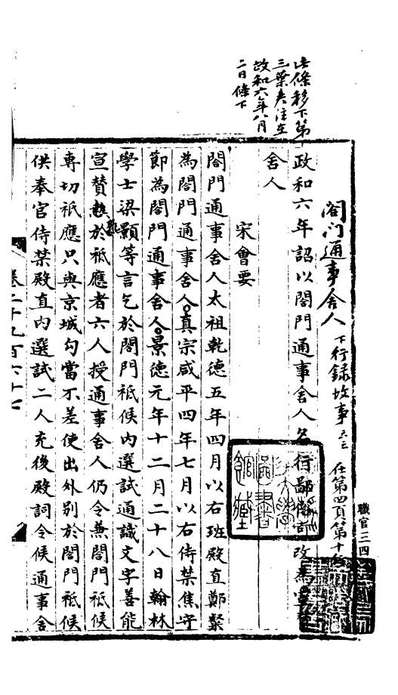 此條移下第
三葉夾注在
政和六年八月
二日條下
閤门通事舍人
下行錄故事
在第四頁第十
職官三四
政和六年詔以閤門通事舍人名行鄙俗
改為
舍人
宋會要
閤門通事舍人太祖乾德五年四月以右班殿直鄭粲
為閤門通事舍人真宗咸平四年七月以右侍禁焦守
節為閤門通事舍人景德元年十二月二十八日翰林
學士梁顥等言乞於閤門祗候內選試通識文字善能
宣贊熟於祗應者六人授通事舍人仍令兼閤門祗候
專切祗應只與京城勾當不差使出外別於閤門祗候
供奉官侍禁殿直內選試二人充後殿詞令候通事舍
卷二千九百六十七